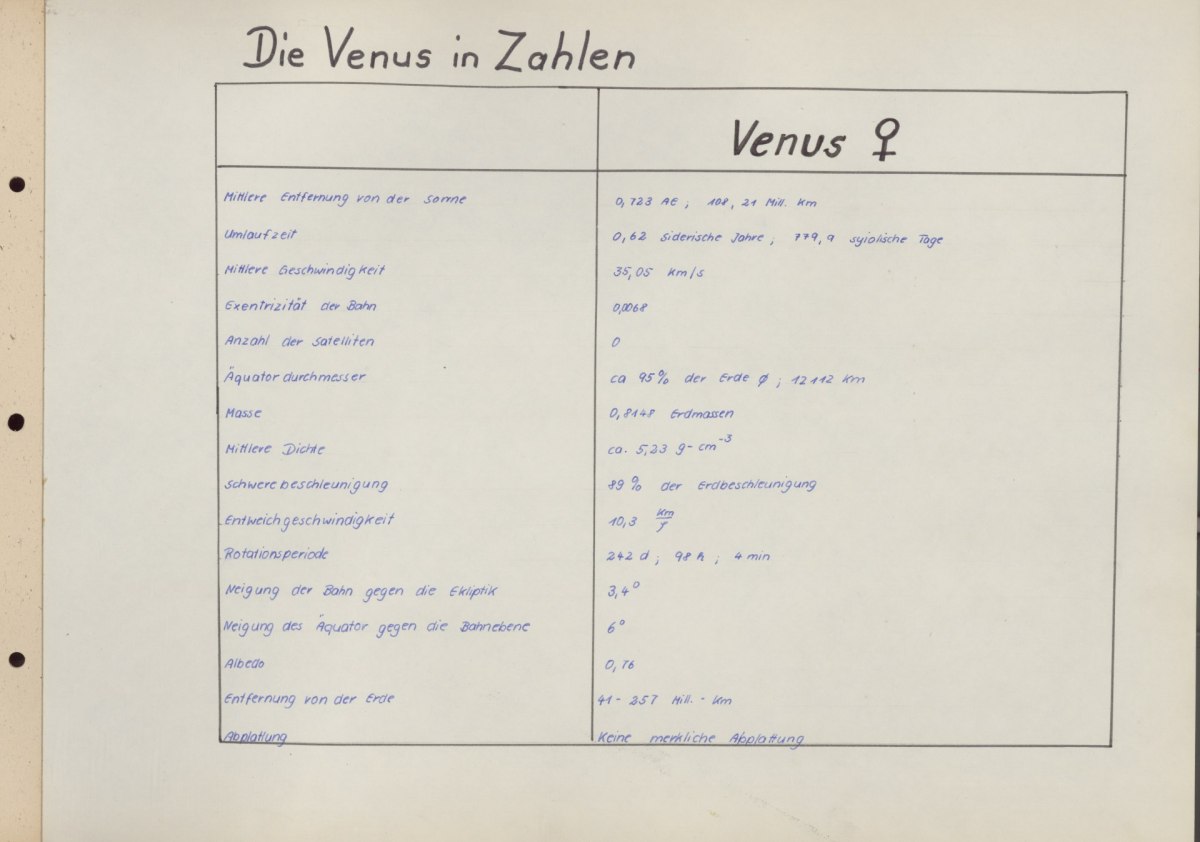 Die Venus in Zahlen
Venus ♀
Mittlere Entfernung von der Sonne 0,723 AE ; 108, 21 Mill. Km
Umlaufzeit 0,62 Siderische Jahre ; 779,9 syiolische Tage
Mittlere Geschwindigkeit 35,05 Km/s
Exentrizität der Bahn 0,0068
Anzahl der Satelliten 0
Äquatordurchmesser ca 95% der Erde ϕ ; 12112 Km
Masse 0,8148 Erdmassen
Mittlere Dichte ca. 5,23 g-cm⁻³
Schwerebeschleunigung 89% der Erdbeschleunigung
Entweichgeschwindigkeit 10,3 km/s
Rotationsperiode 242 d ; 98 h ; 4 min
Neigung der Bahn gegen die Ekliptik 3,4°
Neigung des Äquator gegen die Bahnebene 6°
Albedo 0,76
Entfernung von der Erde 41 - 257 Mill. - Km
Abplattung Keine merkliche Abplattung